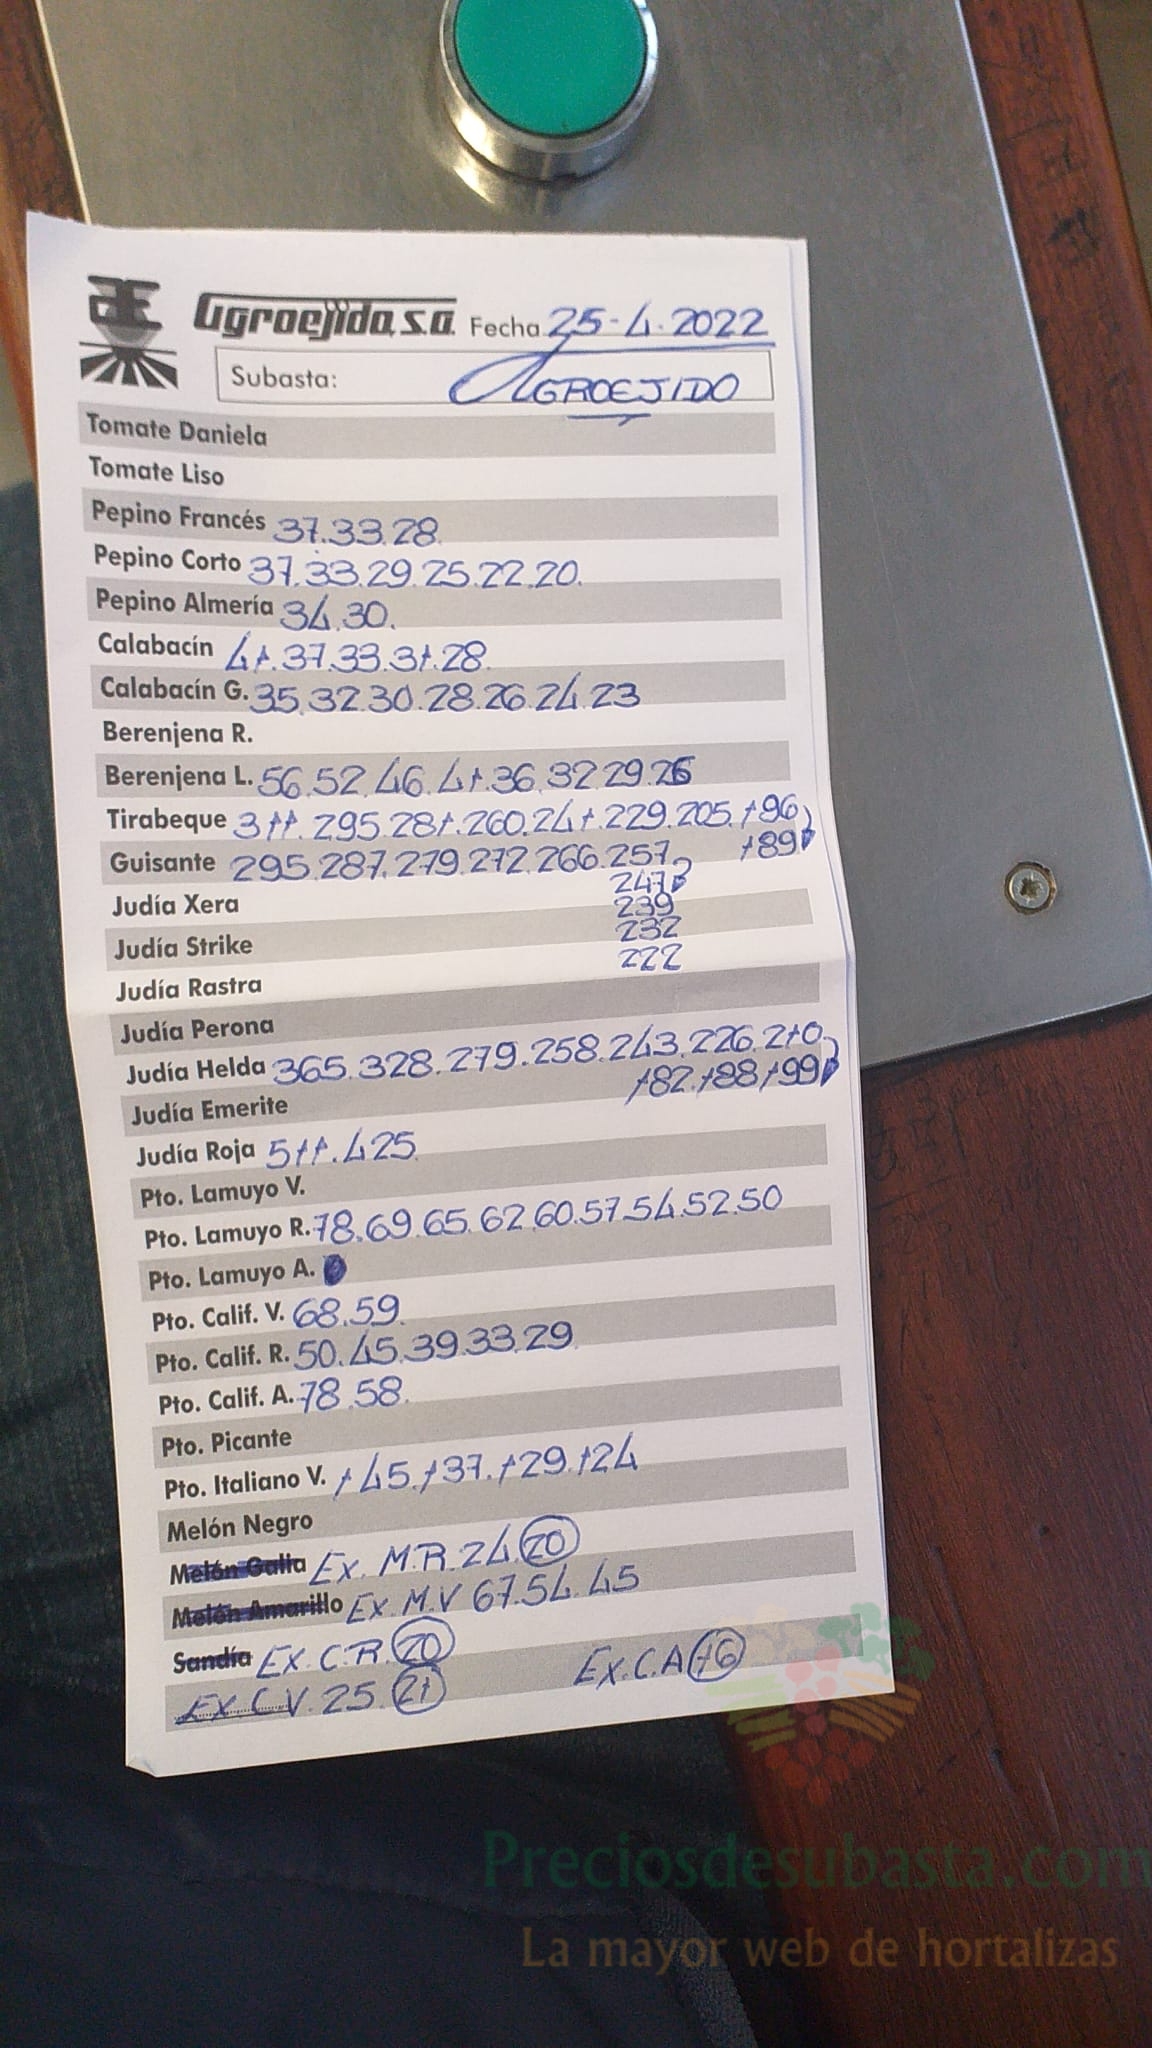 Agroejido, s.a. Fecha 25-4-2022
Subasta: AGROEJIDO
Tomate Daniela
Tomate Liso
Pepino Francés 37.33.28.
Pepino Corto 37.33.29.25.22.20.
Pepino Almería 34.30.
Calabacín 41.37.33.31.28.
Calabacín G. 35.32.30.28.26.24.23
Berenjena R.
Berenjena L. 56.52.46.41.36.32.29.26
Tirabeque 311.295.281.260.241.229.205.196
189
Guisante 295.287.279.272.266.257
247
Judía Xera 239
232
Judía Strike
222
Judía Rastra
Judía Perona
Judía Helda 365.328.279.258.243.226.210
182.188.199
Judía Emerite
Judía Roja 511.425
Pto. Lamuyo V.
Pto. Lamuyo R. 78.69.65.62.60.57.54.52.50
Pto. Lamuyo A.
Pto. Calif. V. 68.59.
Pto. Calif. R. 50.45.39.33.29
Pto. Calif. A. 78.58.
Pto. Picante
Pto. Italiano V. 145.137.129.124
Melón Negro
Melón Galia Ex. M.R. 24.20
Melón Amarillo Ex. M.V 67.54.45
Sandía Ex. C.R. 20 Ex. C.A 16
Ex. C.V. 25.21
Preciosdesubasta.com
La mayor web de hortalizas